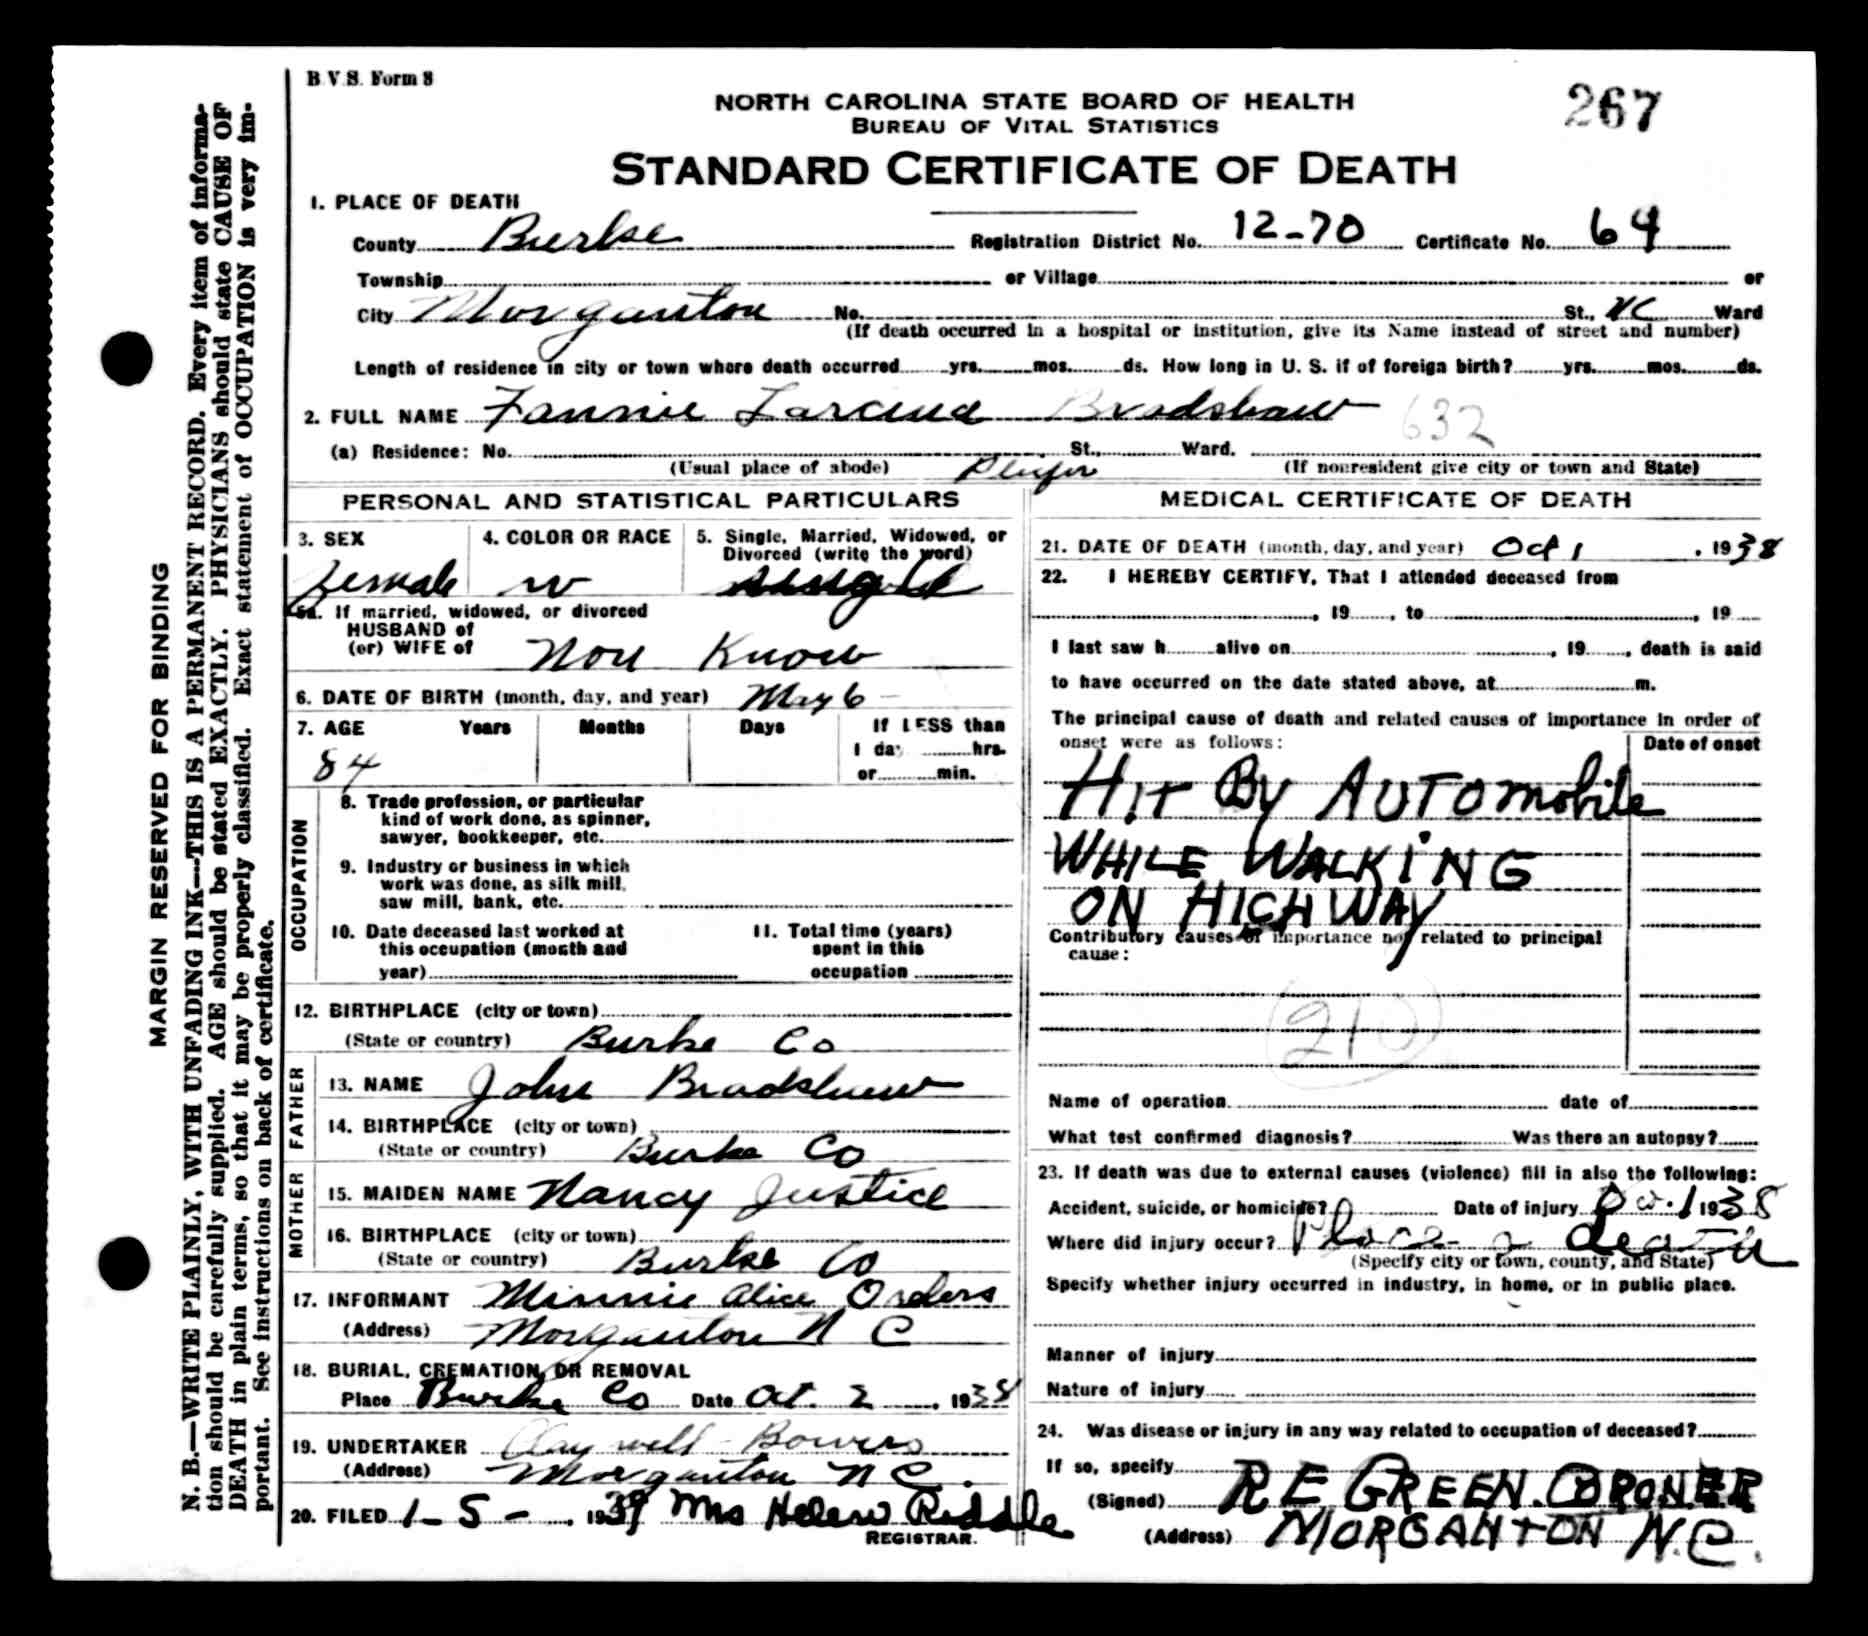 B.V.S. Form 8
267
NORTH CAROLINA STATE BOARD OF HEALTH
BUREAU OF VITAL STATISTICS
STANDARD CERTIFICATE OF DEATH
1. PLACE OF DEATH
County Burke Registration District No. 12-70 Certificate No. 64
Township or Village or
City Morganton No. St., NC Ward
(If death occurred in a hospital or institution, give its Name instead of street and number)
Length of residence in city or town where death occurred yrs. mos. ds. How long in U. S. if of foreign birth? yrs. mos. ds.
2. FULL NAME Fannie Bradshaw 632
(a) Residence: No. St., Ward.
(Usual place of abode) (If nonresident give city or town and State)
PERSONAL AND STATISTICAL PARTICULARS
3. SEX 4. COLOR OR RACE 5. Single, Married, Widowed, or
Divorced (write the word)
female w single
5a. If married, widowed, or divorced
HUSBAND of
(or) WIFE of Non Know
6. DATE OF BIRTH (month, day, and year) May 6 -
7. AGE Years Months Days If LESS than
1 day hrs.
84 or min.
OCCUPATION
8. Trade profession, or particular
kind of work done, as spinner,
sawyer, bookkeeper, etc.
9. Industry or business in which
work was done, as silk mill,
saw mill, bank, etc.
10. Date deceased last worked at
this occupation (month and
year)
11. Total time (years)
spent in this
occupation
12. BIRTHPLACE (city or town)
(State or country) Burke Co
FATHER
13. NAME John Bradshaw
14. BIRTHPLACE (city or town)
(State or country) Burke Co
MOTHER
15. MAIDEN NAME Nancy Justice
16. BIRTHPLACE (city or town)
(State or country) Burke Co
17. INFORMANT Minnie Alice Orders
(Address) Morganton N C
18. BURIAL, CREMATION, OR REMOVAL
Place Burke Co Date Oct. 2, 1938
19. UNDERTAKER Claywell-Bowers
(Address) Morganton N C.
20. FILED 1-5-, 1939 Mrs Helen Riddle
REGISTRAR.
MEDICAL CERTIFICATE OF DEATH
21. DATE OF DEATH (month, day, and year) Oct 1, 1938
22. I HEREBY CERTIFY, That I attended deceased from
, 19 , to , 19
I last saw h alive on , 19 , death is said
to have occurred on the date stated above, at m.
The principal cause of death and related causes of importance in order of
onset were as follows: Date of onset
HIT BY AUTOMOBILE
WHILE WALKING
ON HIGHWAY
Contributory causes of importance not related to principal
cause:
210
Name of operation date of
What test confirmed diagnosis? Was there an autopsy?
23. If death was due to external causes (violence) fill in also the following:
Accident, suicide, or homicide? Date of injury 1 1938
Where did injury occur? Place death
(Specify city or town, county, and State)
Specify whether injury occurred in industry, in home, or in public place.
Manner of injury
Nature of injury
24. Was disease or injury in any way related to occupation of deceased?
If so, specify
(Signed) R E GREEN. CORONER
(Address) MORGANTON N.C.
MARGIN RESERVED FOR BINDING
N. B.—WRITE PLAINLY, WITH UNFADING INK---THIS IS A PERMANENT RECORD. Every item of informa-
tion should be carefully supplied. AGE should be stated EXACTLY. PHYSICIANS should state CAUSE OF
DEATH in plain terms, so that it may be properly classified. Exact statement of OCCUPATION is very im-
portant. See instructions on back of certificate.